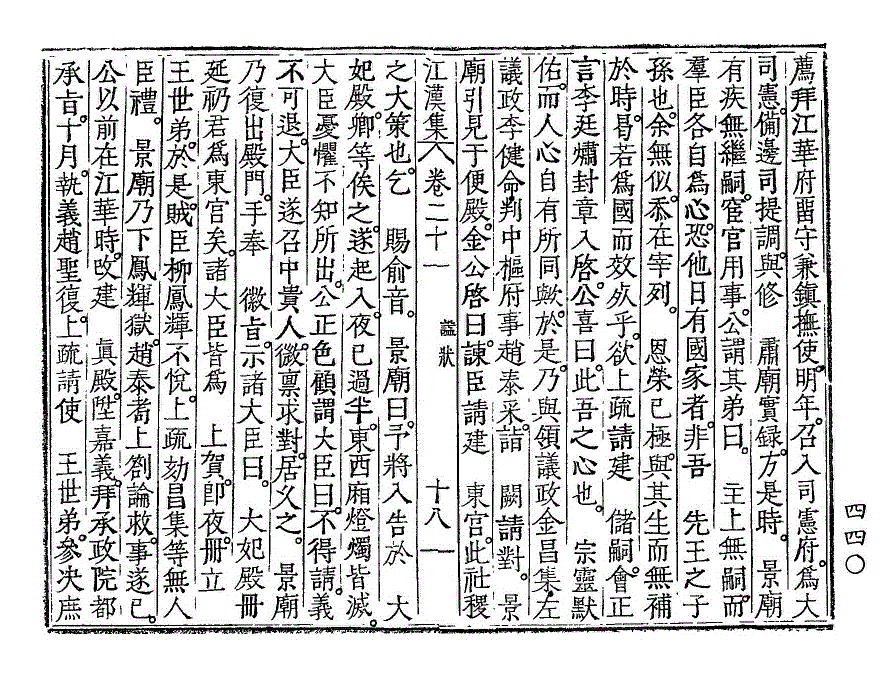 薦。拜江華府留守兼鎭撫使。明年。召入司憲府。爲大
司憲。備邊司提調。與修　肅廟實録。方是時。　景廟
有疾無繼嗣。宦官用事。公謂其弟曰。　主上無嗣。而
羣臣各自爲心。恐他日有國家者。非吾　先王之子
孫也。余無似。忝在宰列。　恩榮已極。與其生而無補
於時。曷若爲國而效死乎。欲上疏請建　儲嗣。會正
言李廷熽封章入啓。公喜曰。此吾之心也。　宗靈默
佑。而人心自有所同歟。於是。乃與領議政金昌集,左
議政李健命,判中樞府事趙泰采。詣　闕請對。　景
廟引見于便殿。金公啓曰。諫臣請建　東宮。此社稷
江漢集　卷二十一　諡狀　十八
之大策也。乞　賜俞音。　景廟曰。予將入告於　大
妃殿。卿等俟之。遂起入。夜已過半。東西廂燈燭皆滅。
大臣憂懼不知所出。公正色顧謂大臣曰。不得請。義
不可退。大臣遂召中貴人。微禀求對。居久之。　景廟
乃復出殿門。手奉　徽旨。示諸大臣曰。　大妃殿册
延礽君爲東宮矣。諸大臣皆爲　上賀。卽夜。册立
王世弟。於是。賊臣柳鳳輝不悅。上疏劾昌集等無人
臣禮。　景廟乃下鳳輝獄。趙泰耉上劄論救。事遂已。
公以前在江華時。改建　眞殿。陞嘉義。拜承政院都
承旨。十月。執義趙聖復。上疏請使　王世弟。參决庶
四四〇